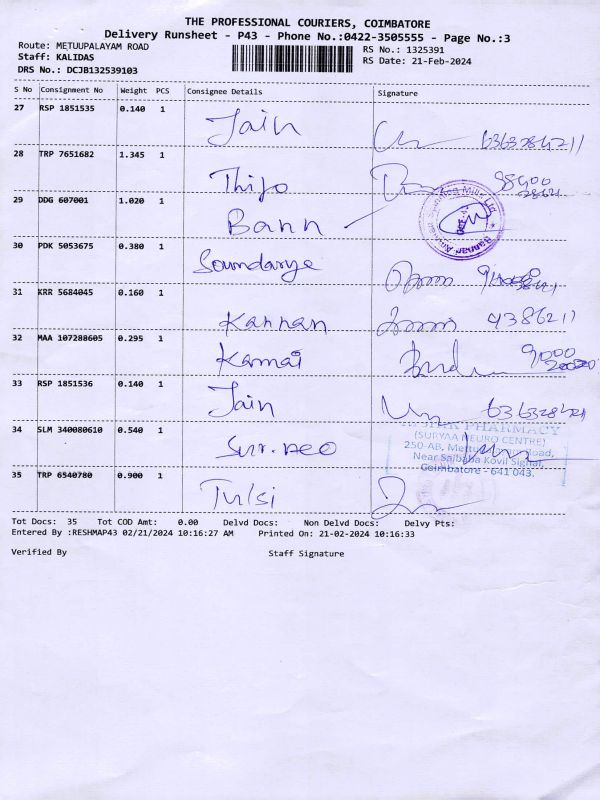 THE PROFESSIONAL COURIERS, COIMBATORE
Delivery Runsheet - P43 - Phone No.:0422-3505555 - Page No.:3
Route: METUUPALAYAM ROAD
RS No.: 1325391
Staff: KALIDAS
RS Date: 21-Feb-2024
DRS No.: DCJB132539103
S No Consignment No Weight PCS Consignee Details Signature
27 RSP 1851535 0.140 1 Jain
28 TRP 7651682 1.345 1 Thijo
29 DDG 607001 1.020 1 Bann
30 PDK 5053675 0.380 1 Soundarya
31 KRR 5684045 0.160 1 Kannan
32 MAA 107288605 0.295 1 Kamai
33 RSP 1851536 0.140 1 Jain
34 SLM 340080610 0.540 1
PHARMACY
(SURYAA NEURO CENTRE)
250-AB, Road,
Near Saibaba Kovil Signal,
Coimbatore - 641 043.
35 TRP 6540780 0.900 1 Tulsi
Tot Docs: 35 Tot COD Amt: 0.00 Delvd Docs: Non Delvd Docs: Delvy Pts:
Entered By :RESHMAP43 02/21/2024 10:16:27 AM Printed On: 21-02-2024 10:16:33
Verified By Staff Signature